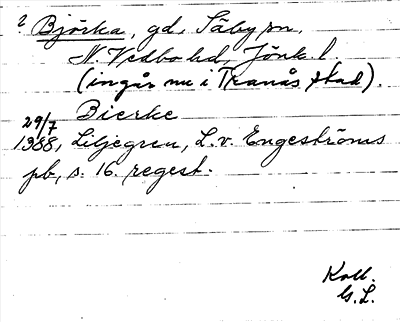 ? Björka, gd, Säby sn,
N. Vedbo hd, Jönk. l.
(ingår nu i Tranås stad).
Bierke
29/7
1388, Liljegren, L. v. Engeströms
pb, s. 16. regest.
Koll.
G. L.